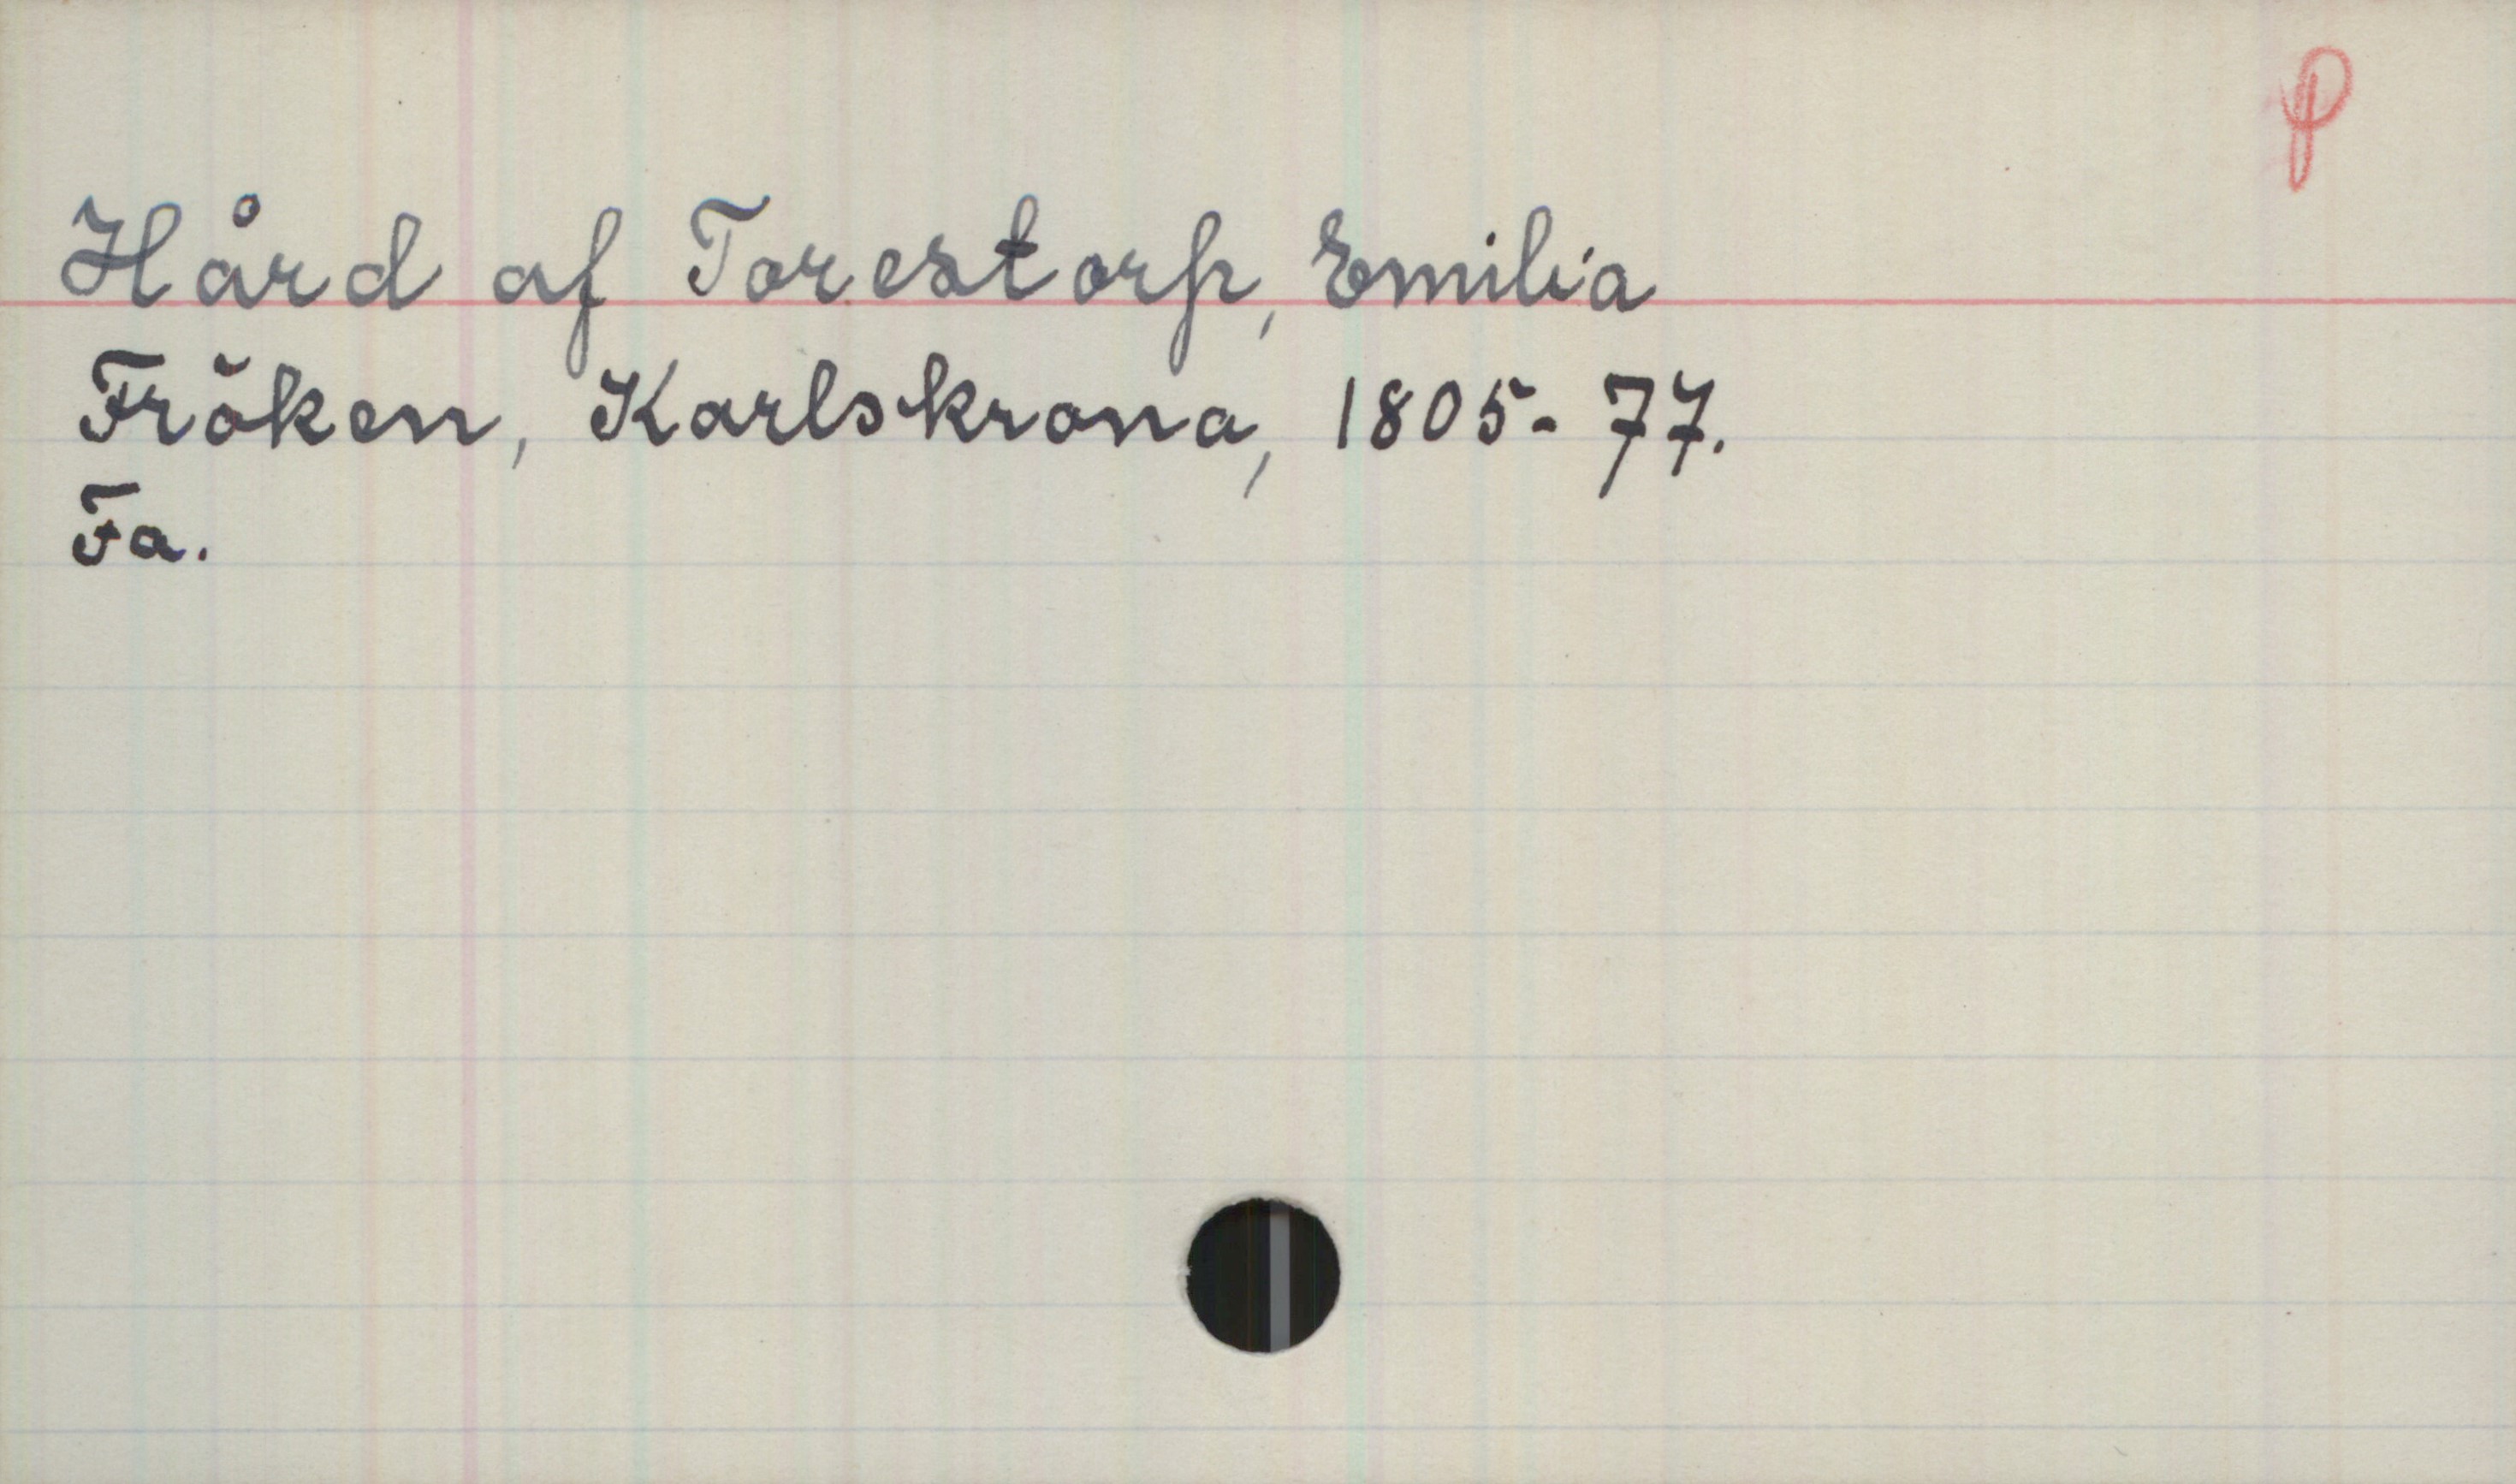 P
Hård af Torestorp, Emilia
Fröken, Karlskrona, 1805-77.
Fa.